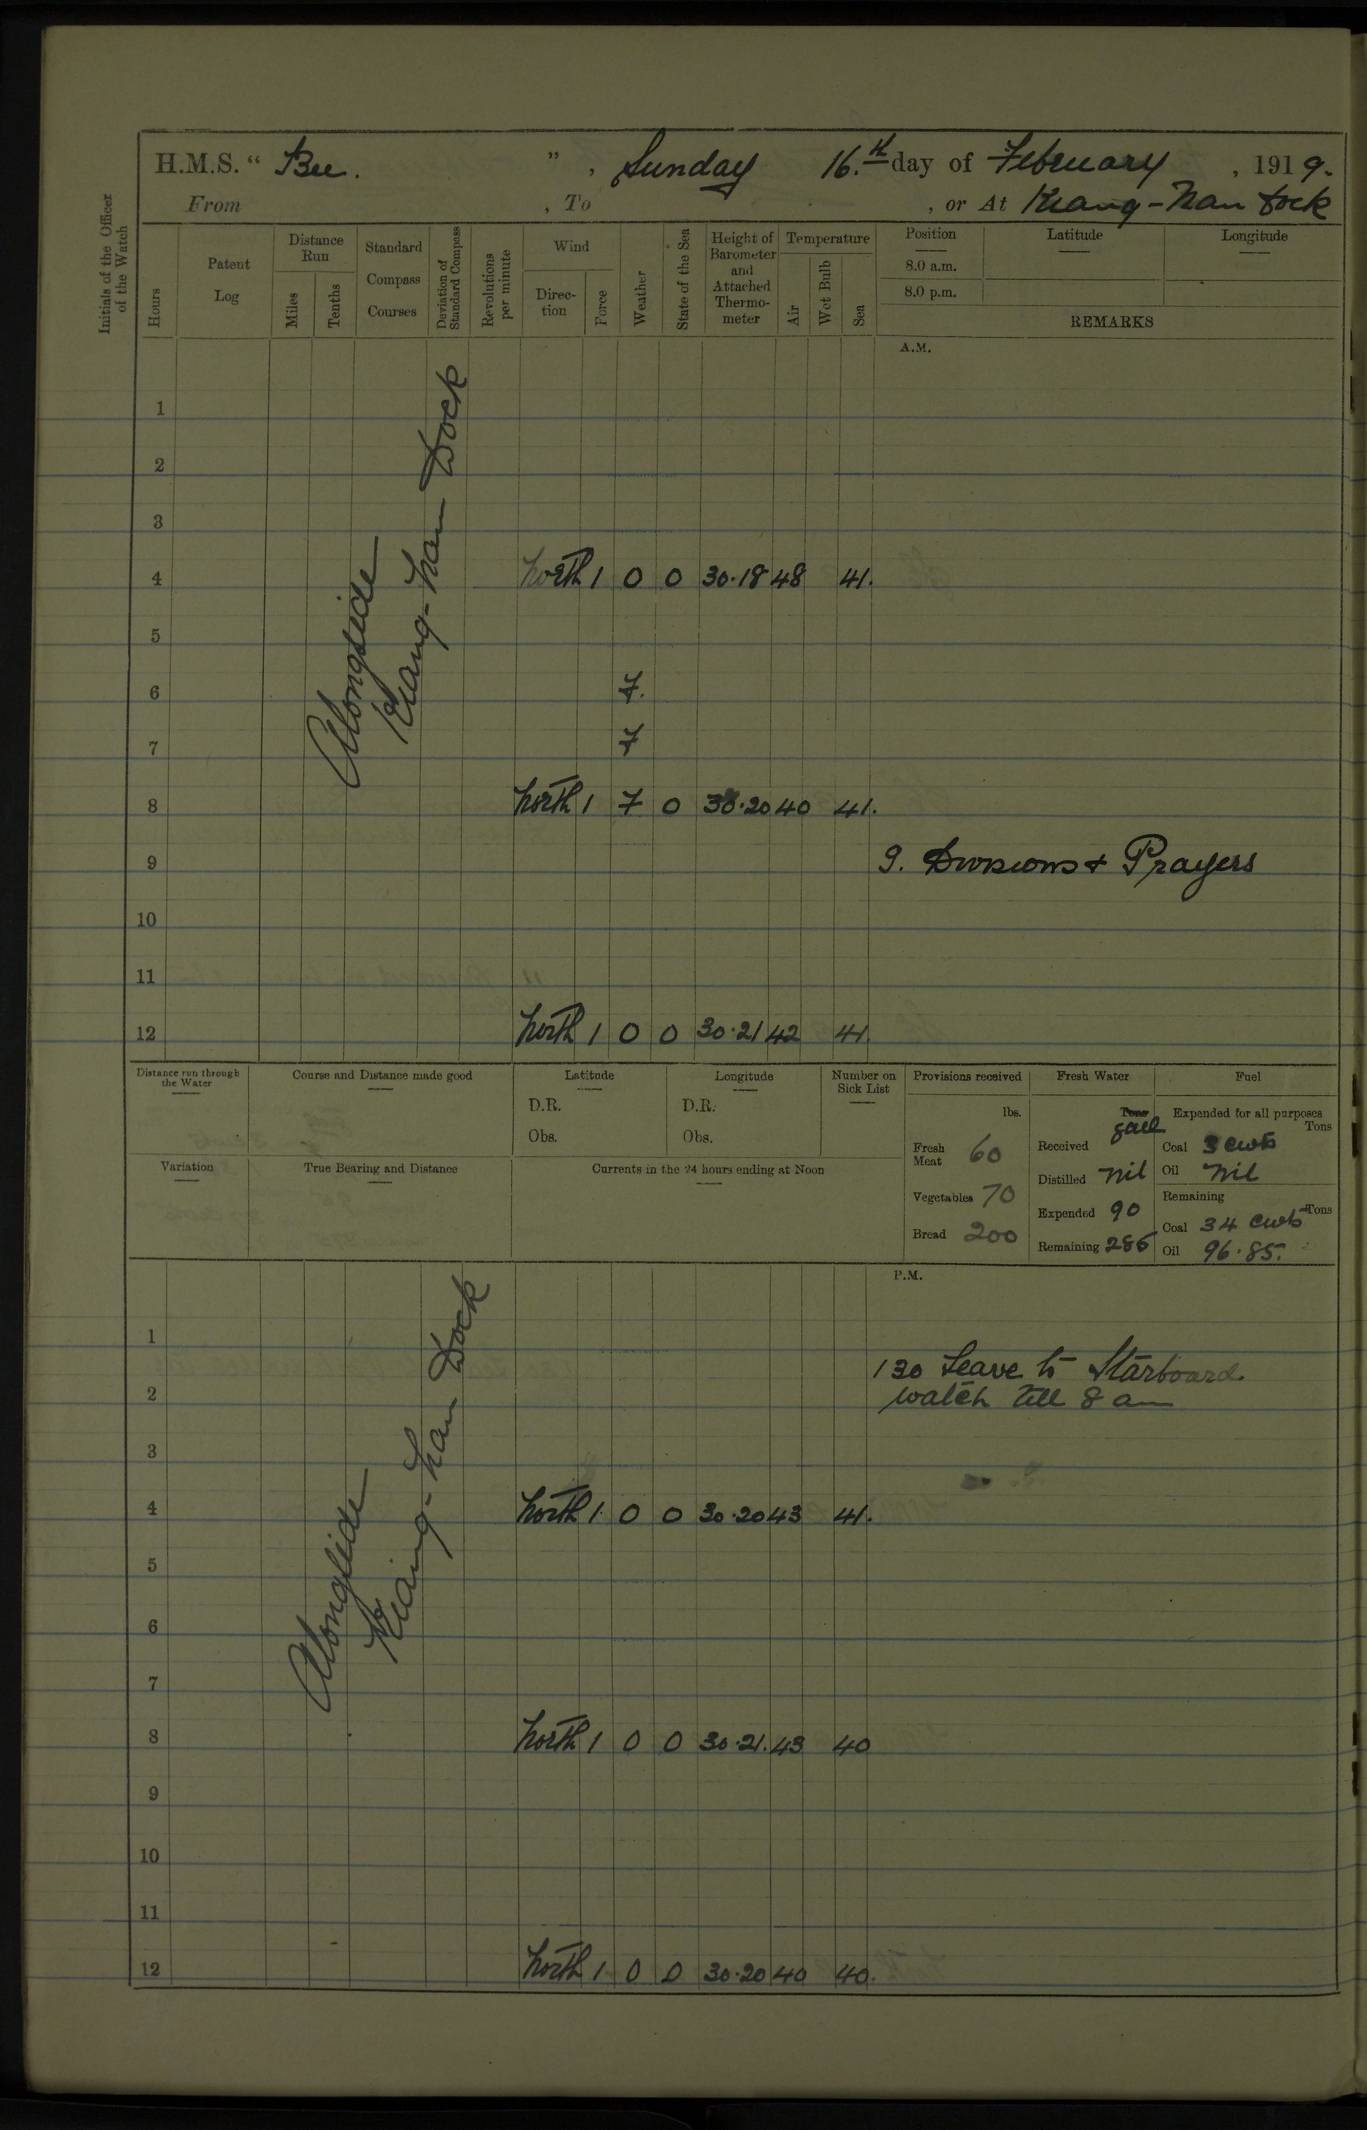 H.M.S. “ Bee. ” , Sunday 16.th day of February , 1919.
From , To , or At Kiang-Nan Dock
Initials of the Officer of the Watch
Hours
Patent Log
Distance Run
Miles
Tenths
Standard Compass Courses
Deviation of Standard Compass
Revolutions per minute
Wind
Direc-tion
Force
Weather
State of the Sea
Height of Barometer and Attached Thermo-meter
Temperature
Air
Wet Bulb
Sea
Position Latitude Longitude
8.0 a.m.
8.0 p.m.
REMARKS
A.M.
Alongside
Kiang-nan Dock
1
2
3
4 North 1 0 0 30.18 48 41.
5
6
7
8 North 1 7 0 30.20 40 41.
9 9. Divisions & Prayers
10
11
12 North 1 0 0 30.21 42 41.
Distance run through the Water
Course and Distance made good
Latitude
D.R.
Obs.
Longitude
D.R.
Obs.
Number on Sick List
Variation
True Bearing and Distance
Currents in the 24 hours ending at Noon
Provisions received
lbs.
Fresh Meat 60
Vegetables 70
Bread 200
Fresh Water
Tons
gall
Received
Distilled Nil
Expended 90
Remaining 286
Fuel
Expended for all purposes
Tons
Coal 3 cwts
Oil Nil
Remaining
Tons
Coal 34 cwts
Oil 96.85.
P.M.
Alongside
Kiang-nan Dock
1
130 Leave to Starboard
2 watch till 8 am
3
4 North 1. 0 0 30.20 43 41.
5
6
7
8 North 1 0 0 30.21. 43 40
9
10
11
12 North 1 0 0 30.20 40 40.